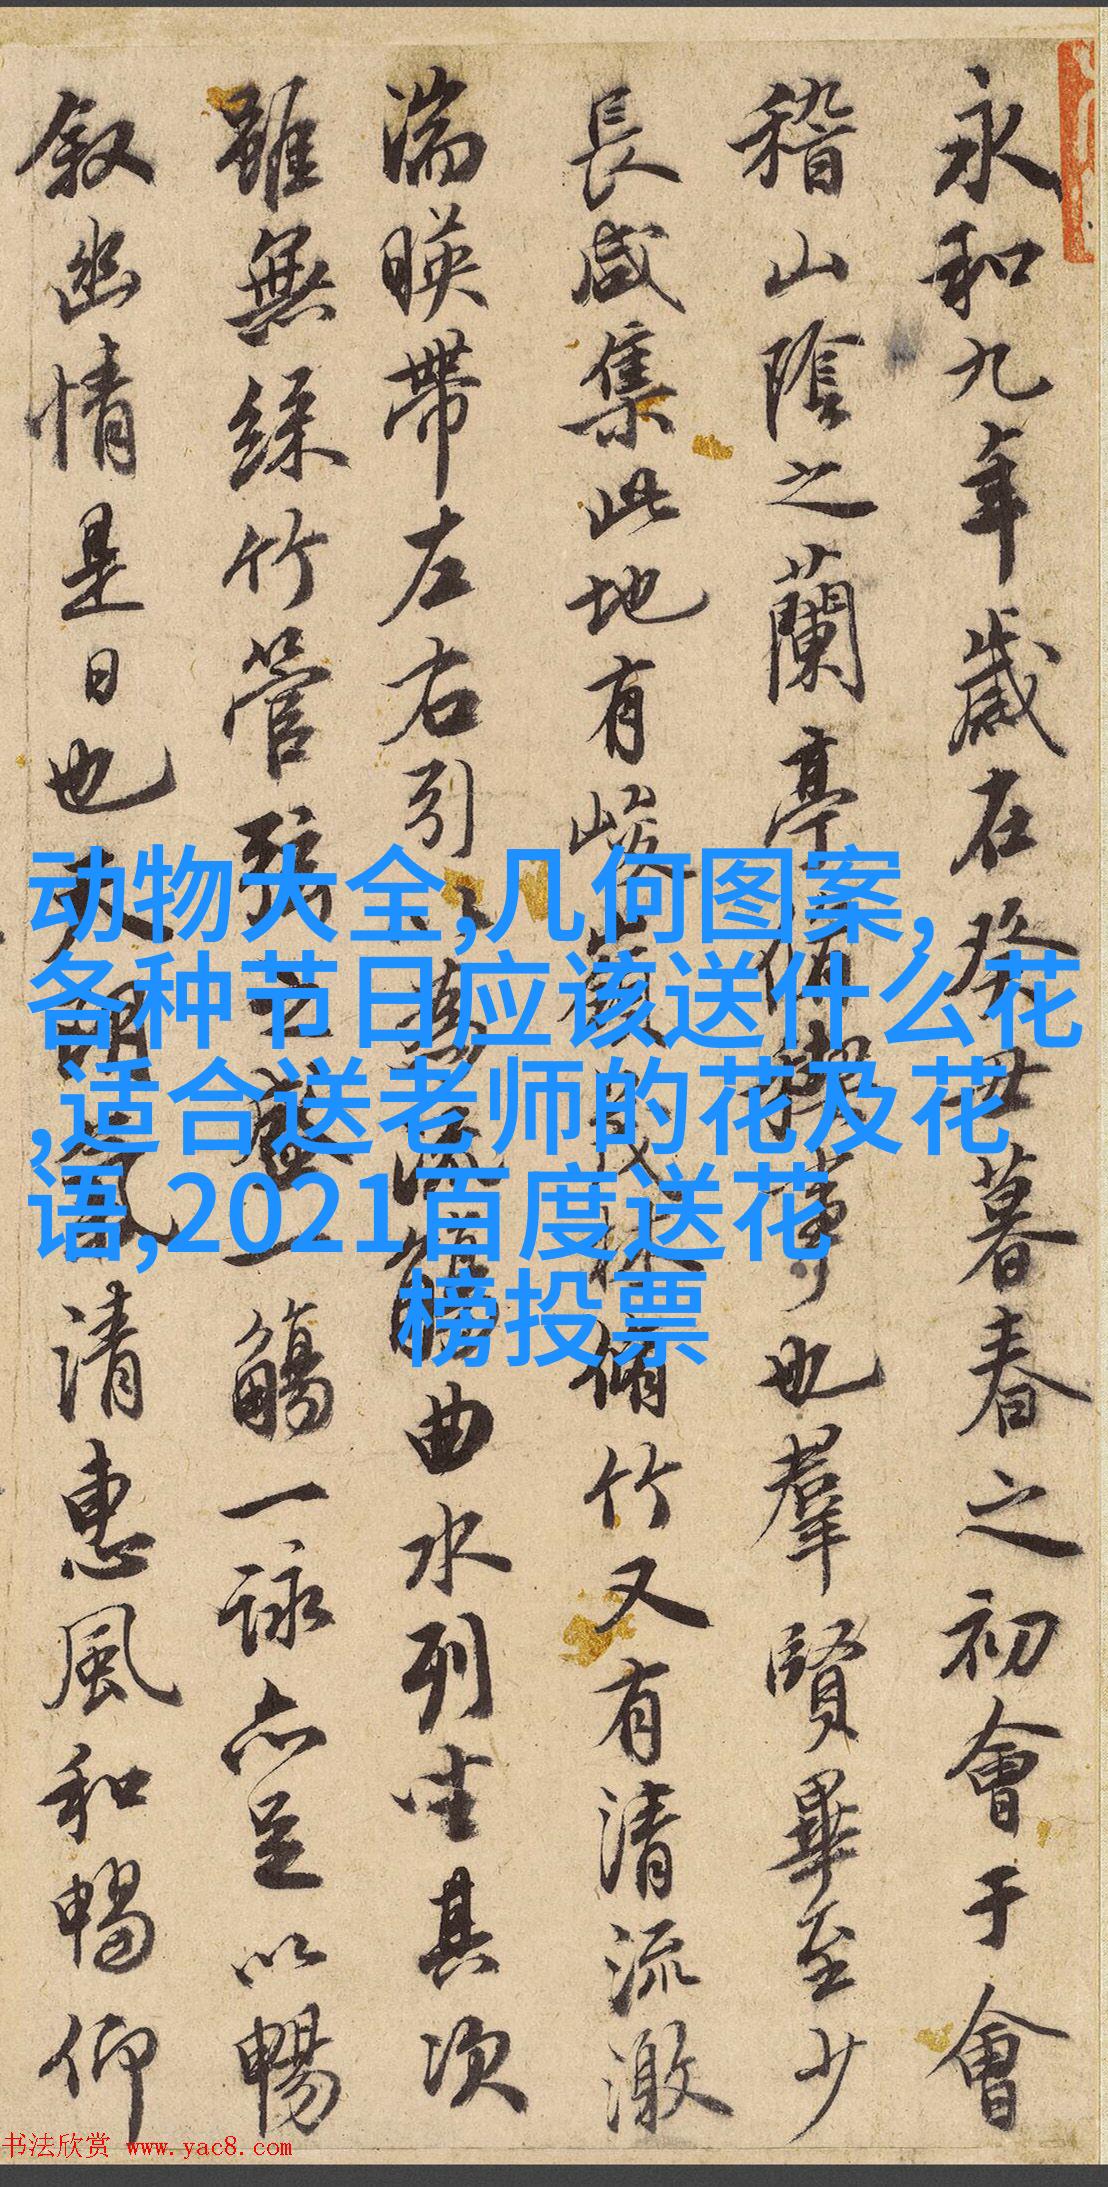 永和九年歲在癸丑暮春之初會于會
稽山陰之蘭亭脩禊事也羣賢畢至少
長咸集此地有峻嶺茂林脩竹又有清流激
湍暎帶左右引以為流觴曲水列坐其次
雖無絲竹管弦之盛一觴一詠亦足以暢
叙幽情是日也天朗氣清惠風和暢仰
动物大全,几何图案,
各种节日应该送什么花
,适合送老师的花及花
语,2021百度送花
榜投票
书法欣赏 www.yac8.com